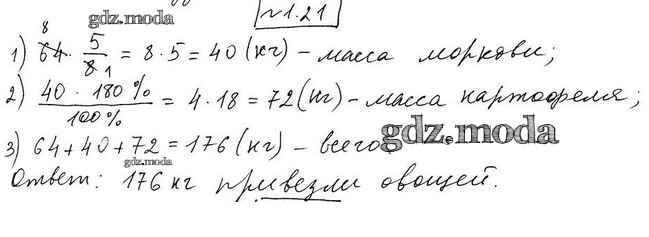 №1.21
gdz.moda
1) 64 · 5/8 = 8 · 5 = 40 (кг) – масса моркови;
2) 40 · 180% / 100% = 4 · 18 = 72 (кг) – масса картофеля;
3) 64 + 40 + 72 = 176 (кг) – всего.
gdz.moda
gdz.moda
Ответ: 176 кг привезли овощей.